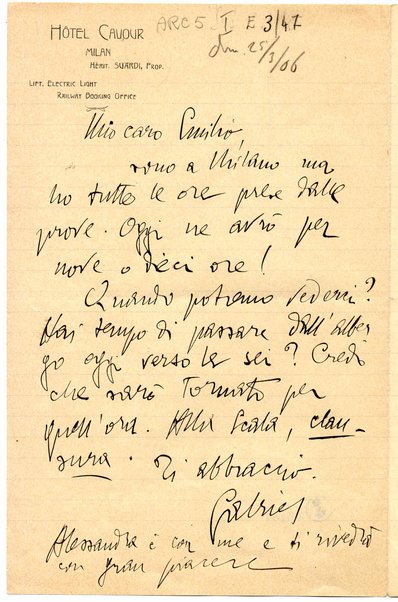 HÔTEL CAVOUR
MILAN
HÉRIT. SUARDI, PROP.
LIFT. ELECTRIC LIGHT
RAILWAY BOOKING OFFICE
ARC 5 I E 3/47
25/3/06
Mio caro Emilio,
sono a Milano ma
ho tutte le ore prese dalle
prove. Oggi ne avrò per
nove o dieci ore!
Quando potremo vederci?
Hai tempo di passare dall'alber
go oggi verso le sei? Credo
che sarò tornato per
quell'ora. Alla Scala, clau-
sura. Ti abbraccio.
Gabriel
Alessandra è con me e ti rivedrà
con gran piacere